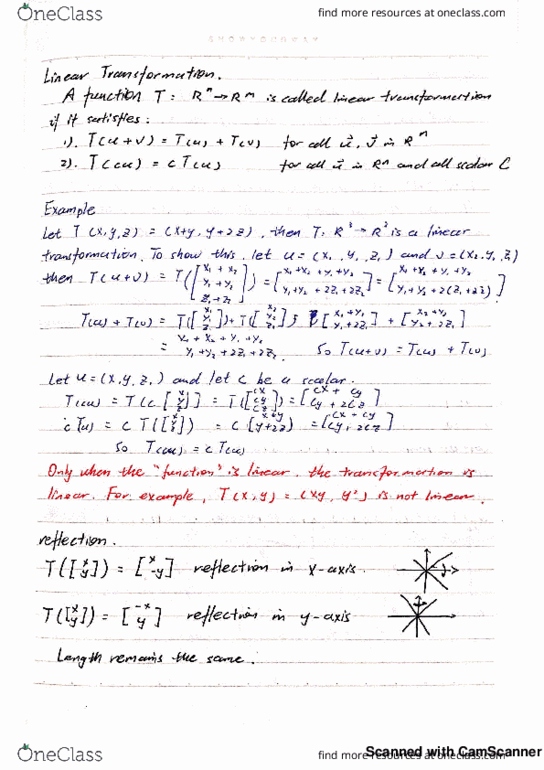 OneClass
find more resources at oneclass.com
Linear Transformation.
A function T: Rⁿ→Rᵐ is called linear transformation
if it satisfies:
1). T(u+v) = T(u) + T(v) for all u⃗, v⃗ in Rⁿ
2). T(cu) = cT(u) for all u⃗ in Rⁿ and all scalar C
Example
Let T(x,y,z) = (x+y, y+2z), then T: R³→R² is a linear
transformation. To show this, let u = (x₁, y₁, z₁) and v = (x₂, y₂, z₂)
then T(u+v) = T([x₁+x₂ y₁+y₂ z₁+z₂]) = [x₁+x₂+y₁+y₂ y₁+y₂+2z₁+2z₂] = [x₁+x₂+y₁+y₂ y₁+y₂+2(z₁+z₂)]
T(u)+T(v) = T([x₁ y₁ z₁]) + T([x₂ y₂ z₂]) = [x₁+y₁ y₁+2z₁] + [x₂+y₂ y₂+2z₂]
= x₁+x₂+y₁+y₂ y₁+y₂+2z₁+2z₂ So T(u+v) = T(u) + T(v)
Let u = (x, y, z,) and let c be a scalar.
T(cu) = T(c[x y z]) = T([cx cy cz]) = [cx+cy cy+2cz]
cT(u) = cT([x y z]) = c[x+y y+2z] = [cx+cy cy+2cz]
So T(cu) = cT(u)
Only when the "function" is linear, the transformation is
linear. For example, T(x,y) = (xy, y²) is not linear.
reflection.
T([x y]) = [x -y] reflection in x-axis
T([x y]) = [-x y] reflection in y-axis
Length remains the same.
OneClass
find more resources at oneclass.com
Scanned with CamScanner